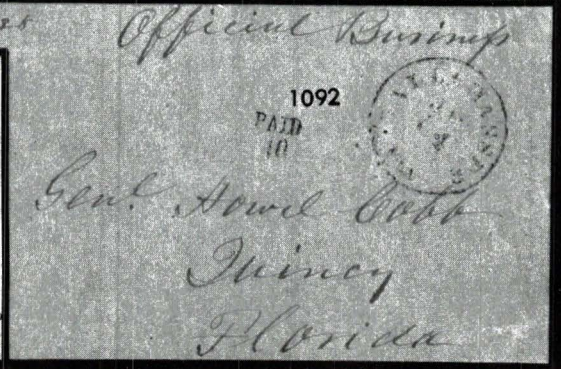 Official Business
1092
PAID
10
TALLAHASSEE
Genl. Howel Cobb
Quincy
Florida